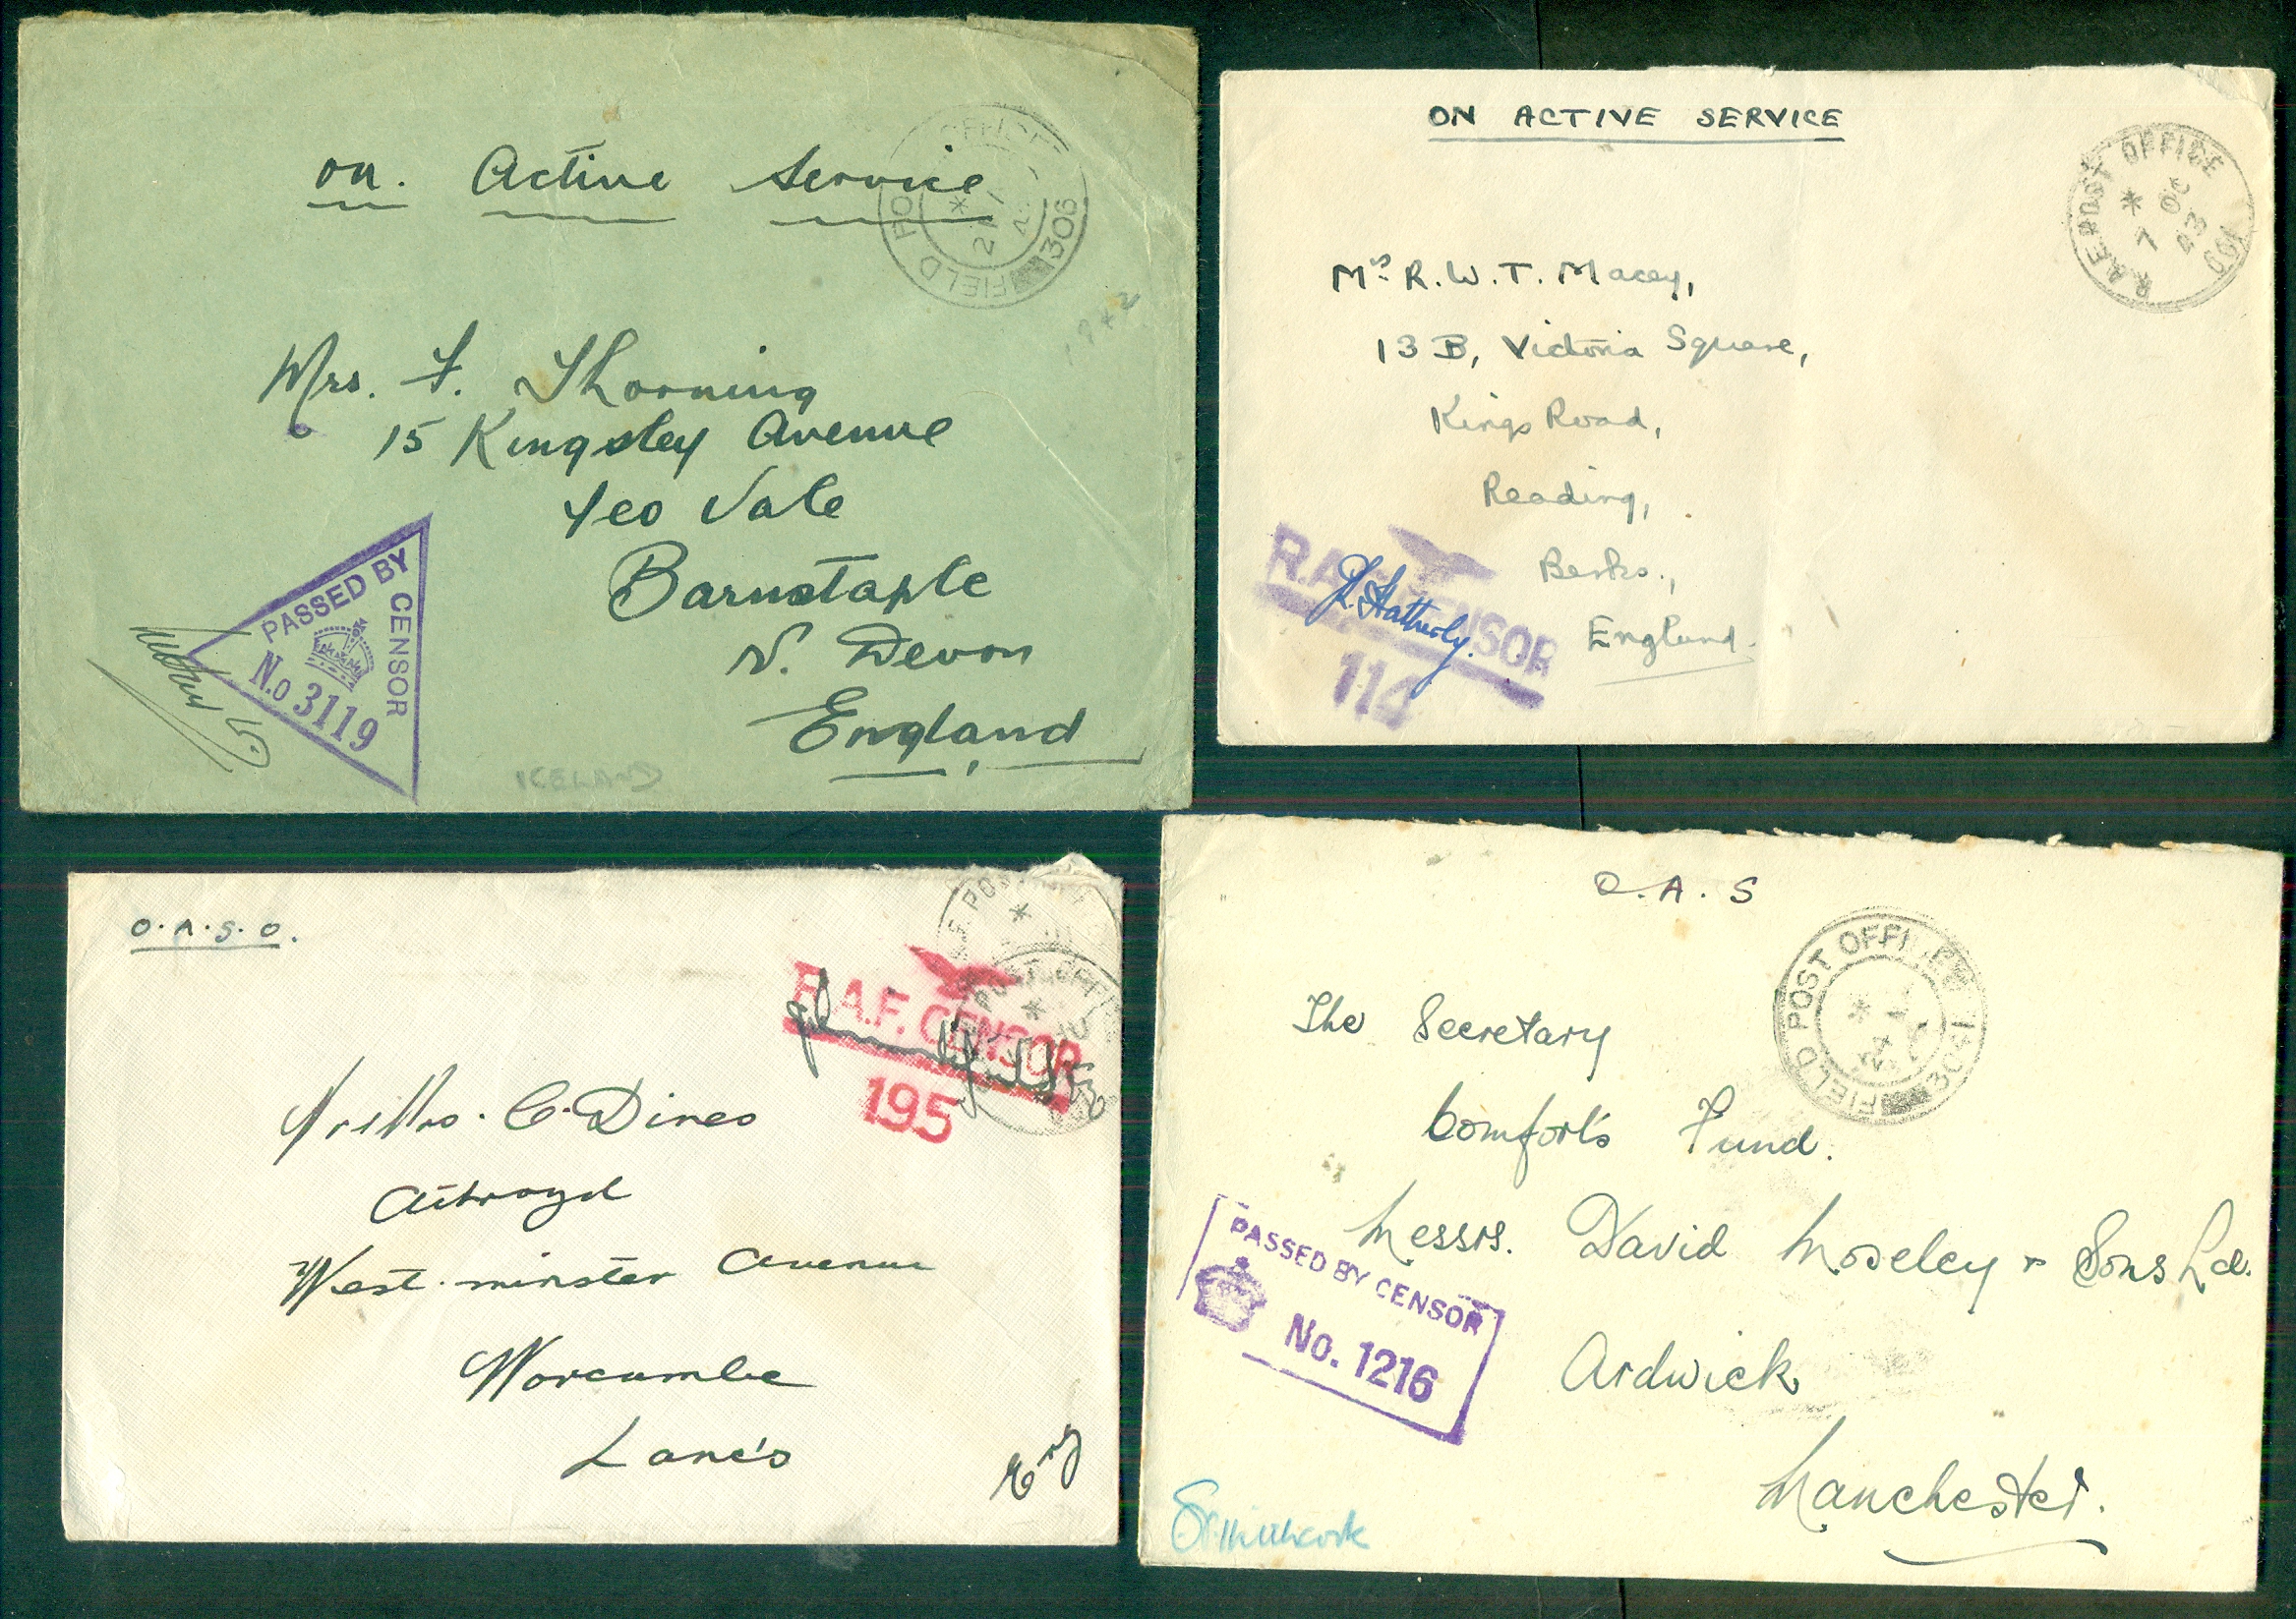 on. Active Service
FIELD POST OFFICE
306
1942
Mrs. F. Thorning
15 Kingsley Avenue
Yeo Vale
Barnstaple
N. Devon
England
PASSED BY CENSOR
No 3119
ICELAND
ON ACTIVE SERVICE
R.A.F. POST OFFICE
* 
7 DE
43
001
Mrs R.W.T. Macey,
13 B, Victoria Square,
Kings Road,
Reading,
Berks.,
England.
R.A.F. CENSOR
114
J. Hatherly.
O.A.S.O.
R.A.F. CENSOR
195
Mrs. C. Dines
West-minster Avenue
Morecambe
Lancs
Eng
O.A.S
FIELD POST OFFICE
304
The Secretary
Comforts Fund.
Messrs. David Moseley & Sons Ld.
Ardwick
Manchester.
PASSED BY CENSOR
No. 1216